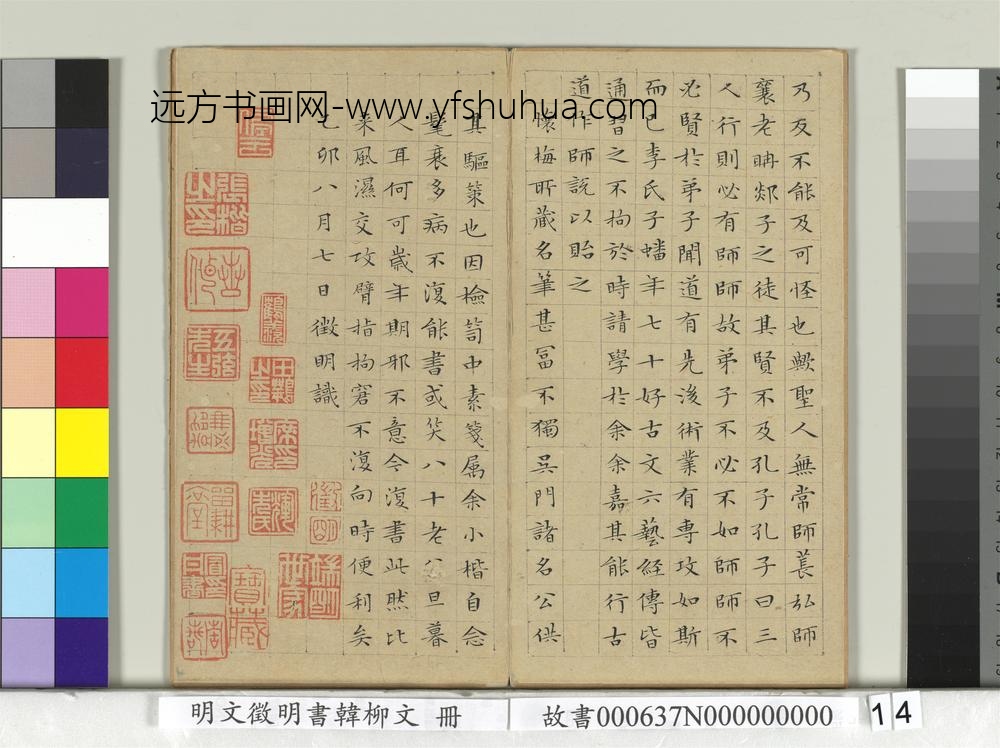 乃反不能及可怪也歟聖人無常師萇弘師
襄老聃郯子之徒其賢不及孔子孔子曰三
人行則必有師師故弟子不必不如師師不
必賢於弟子聞道有先後術業有專攻如斯
而已李氏子蟠年七十好古文六藝經傳皆
通習之不拘於時請學於余余嘉其能行古
道作師說以貽之
懷梅所藏名筆甚富不獨吳門諸名公供
其驅策也因檢笥中素箋属余小楷自念
耄衰多病不復能書或笑八十老公旦暮
人耳何可歲年期邪不意今復書此然比
来風濕交攻臂指拘窘不復向時便利矣
乙卯八月七日徵明識
徵明
寶藏
远方书画网-www.yfshuhua.com
明文徵明書韓柳文 冊
故書000637N000000000
14